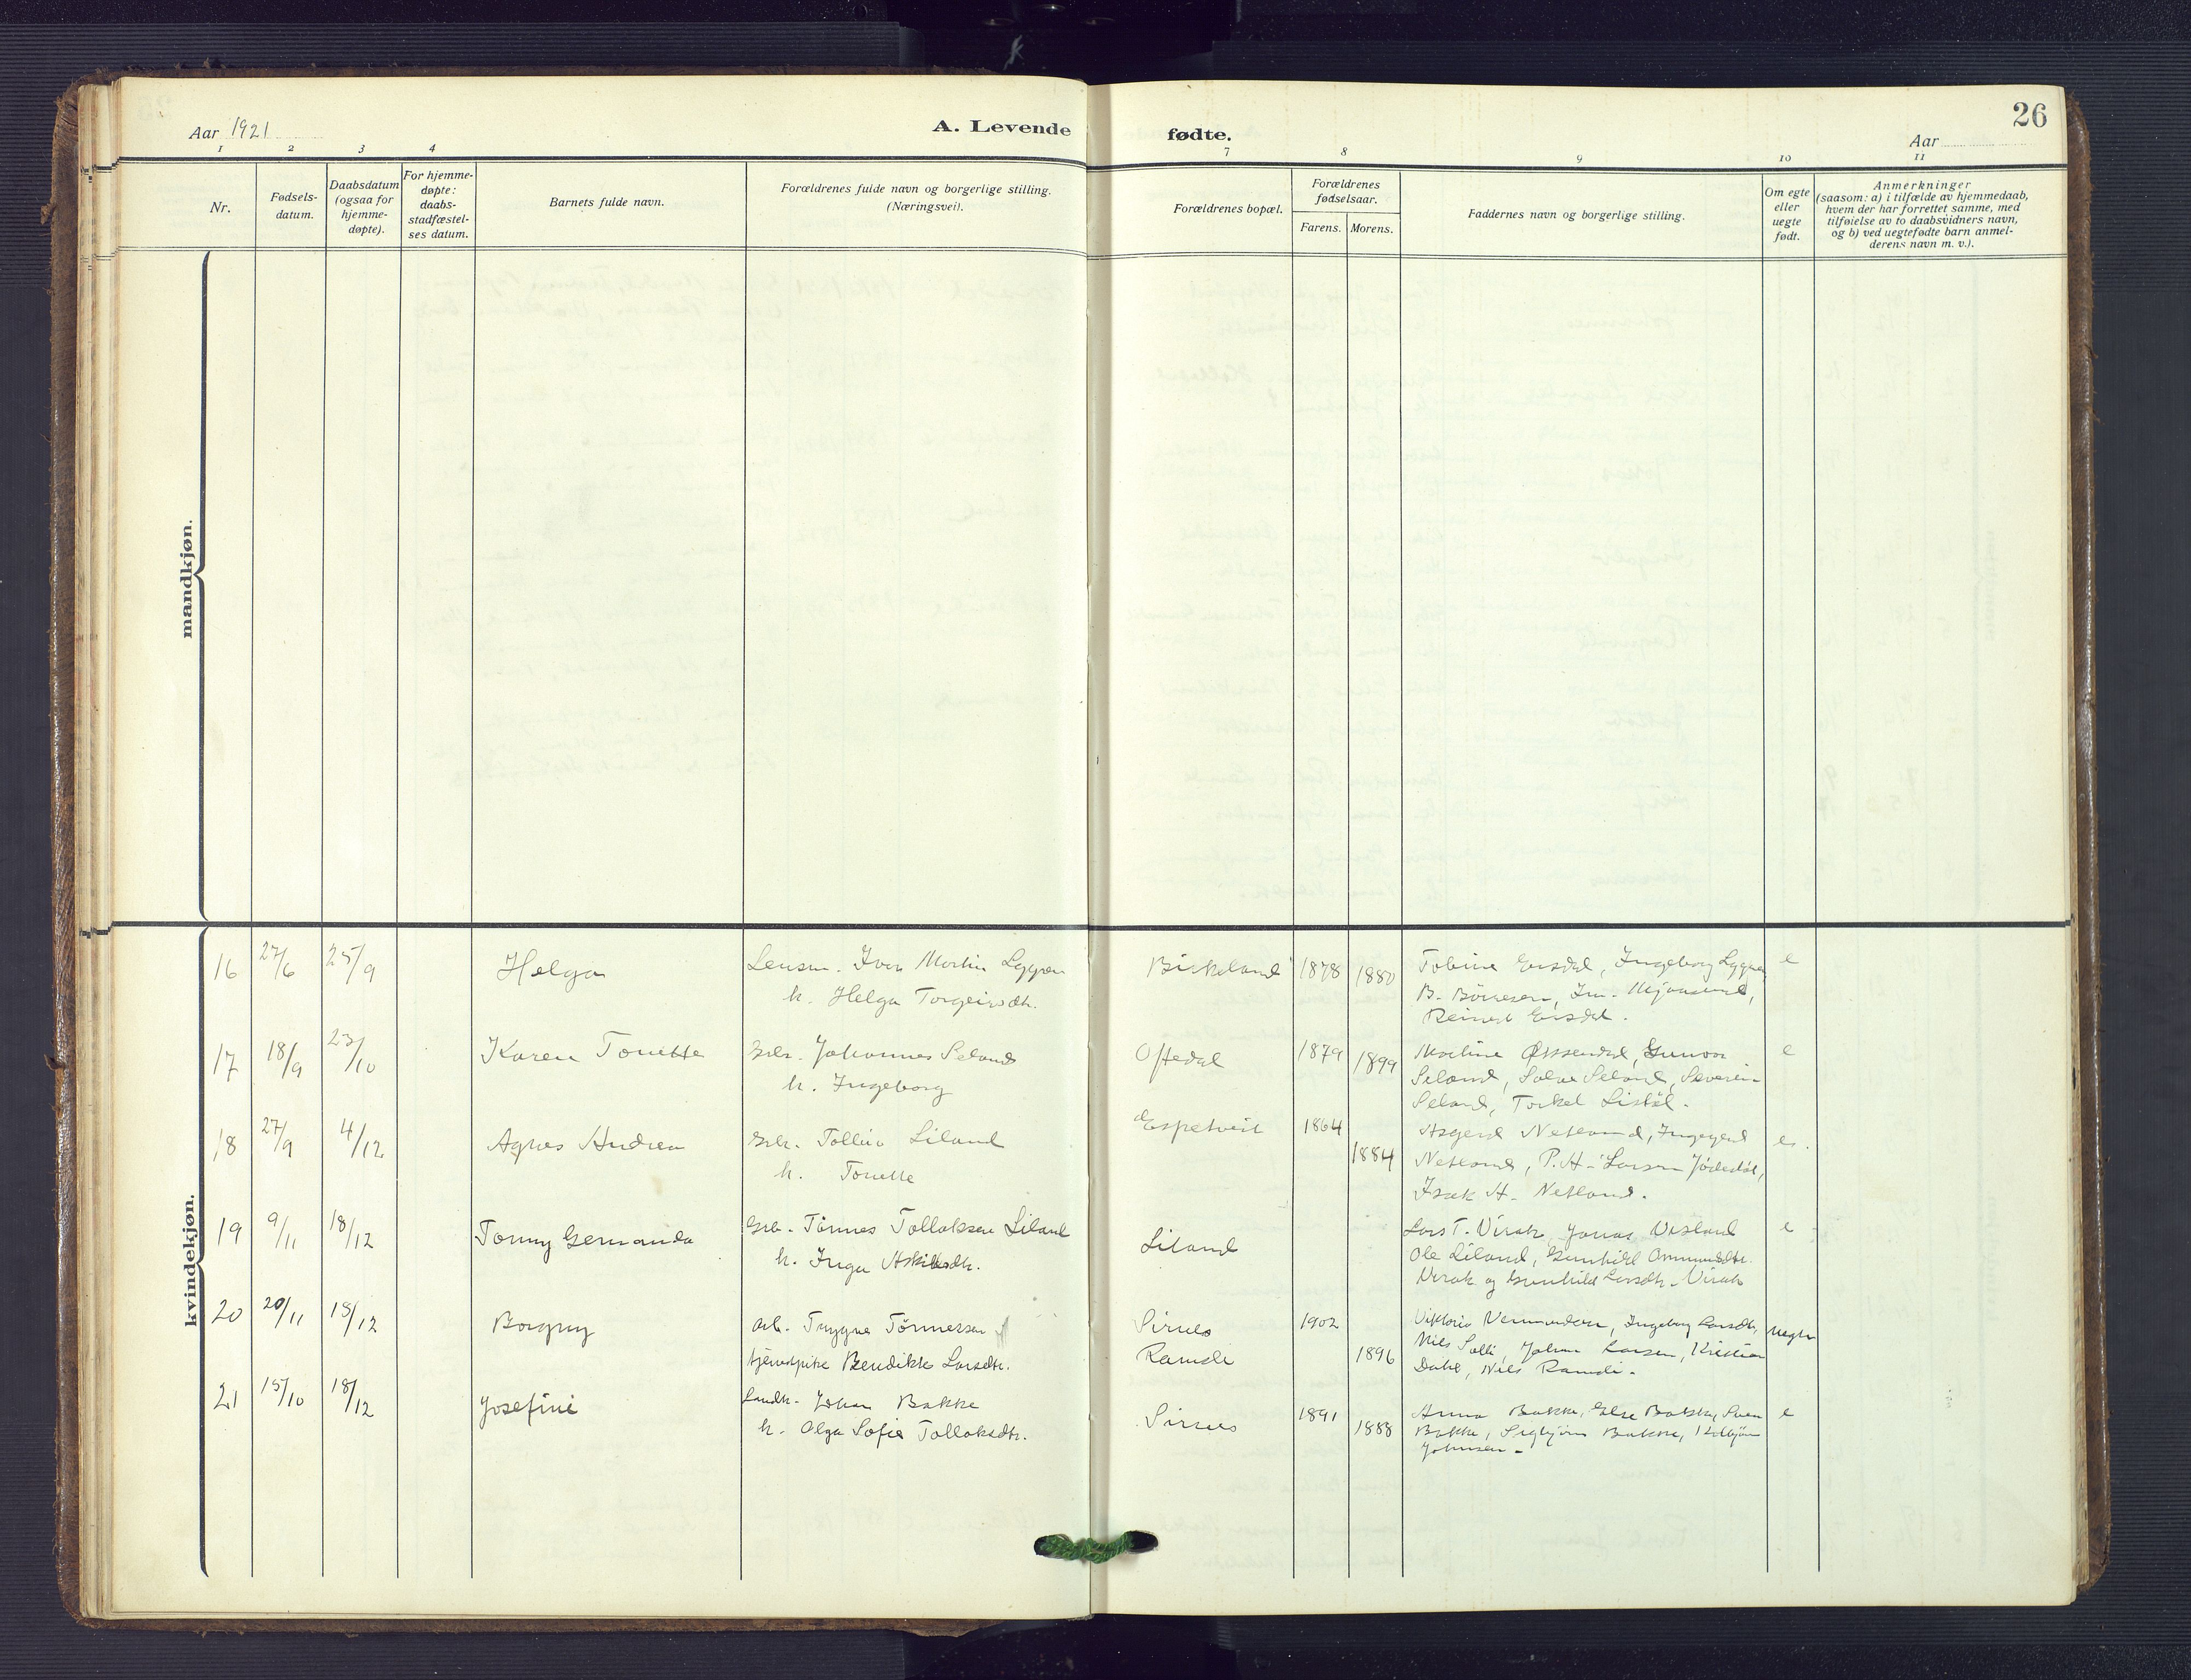 26
Aar 1921
A. Levende
fødte.
Aar
1 2 3 4
7 8 9 10 11
Nr.
Fødsels-
datum.
Daabsdatum
(ogsaa for
hjemme-
døpte).
For hjemme-
døpte:
daabs-
stadfæstel-
ses datum.
Barnets fulde navn.
Forældrenes fulde navn og borgerlige stilling.
(Næringsvei).
Forældrenes bopæl.
Forældrenes
fødselsaar.
Farens.
Morens.
Faddernes navn og borgerlige stilling.
Om egte
eller
uegte
født.
Anmerkninger
(saasom: a) i tilfælde av hjemmedaab,
hvem der har forrettet samme, med
tilføielse av to daabsvidners navn,
og b) ved uegtefødte barn anmel-
derens navn m. v.).
mandkjøn.
kvindekjøn.
16 27/6 25/9 Helga
Lensm. Iver Martin Lyggen
h. Helga Torgeirsdtr.
Birkeland 1878 1880
Tobine Eersdal, Ingeborg Lyggen,
B. Børresen,
e
17 18/9 23/10 Karen Tonette
Grbr. Johannes Seland
h. Ingeborg
Oftedal 1879 1899
Martine Øksendal, Gunvor
Seland, Salve Seland, Severin
Seland, Torkel Listøl.
e
18 27/9 4/12 Agnes Andrea
Grbr. Tolliv Liland
h. Tonette
Espetveit 1864 1884
Asgerd Netland, Ingegerd
Netland, P. H. Larsen
Isak H. Netland.
19 9/11 18/12 Tonny Germanda
Grb. Tønnes Tollaksen Liland
h. Inga Askildsdtr.
Liland
Lars T. Virak, Jonas
Ole Liland, Gunhild Ommundsdtr.
Virak og Gunhild Larsdtr. Virak
e
20 20/11 18/12 Borgny
Arb. Trygve Tønnessen
tjenestpike Bendikte Larsdtr.
Sirnes 1902
Ramsli 1896
Viktoria Ingeborg Larsdtr,
Nils Solli, Johan Larsen, Kristian
Dahl, Nils Ramsli.
uegte
21 15/10 18/12 Josefine
Landh. Johan Bakke
h. Olga Sofie Tollaksdtr.
Sirnes 1891 1888
Anna Bakke, Else Bakke, Sven
Bakke, Sigbjørn Bakke, Kolbjørn
Johnsen.
e